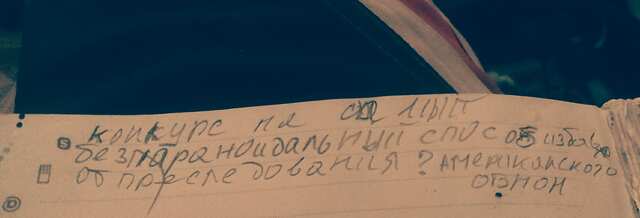 конкурс на самый
безпараноидальный способ избав
от преследования? американского
ОВНОН